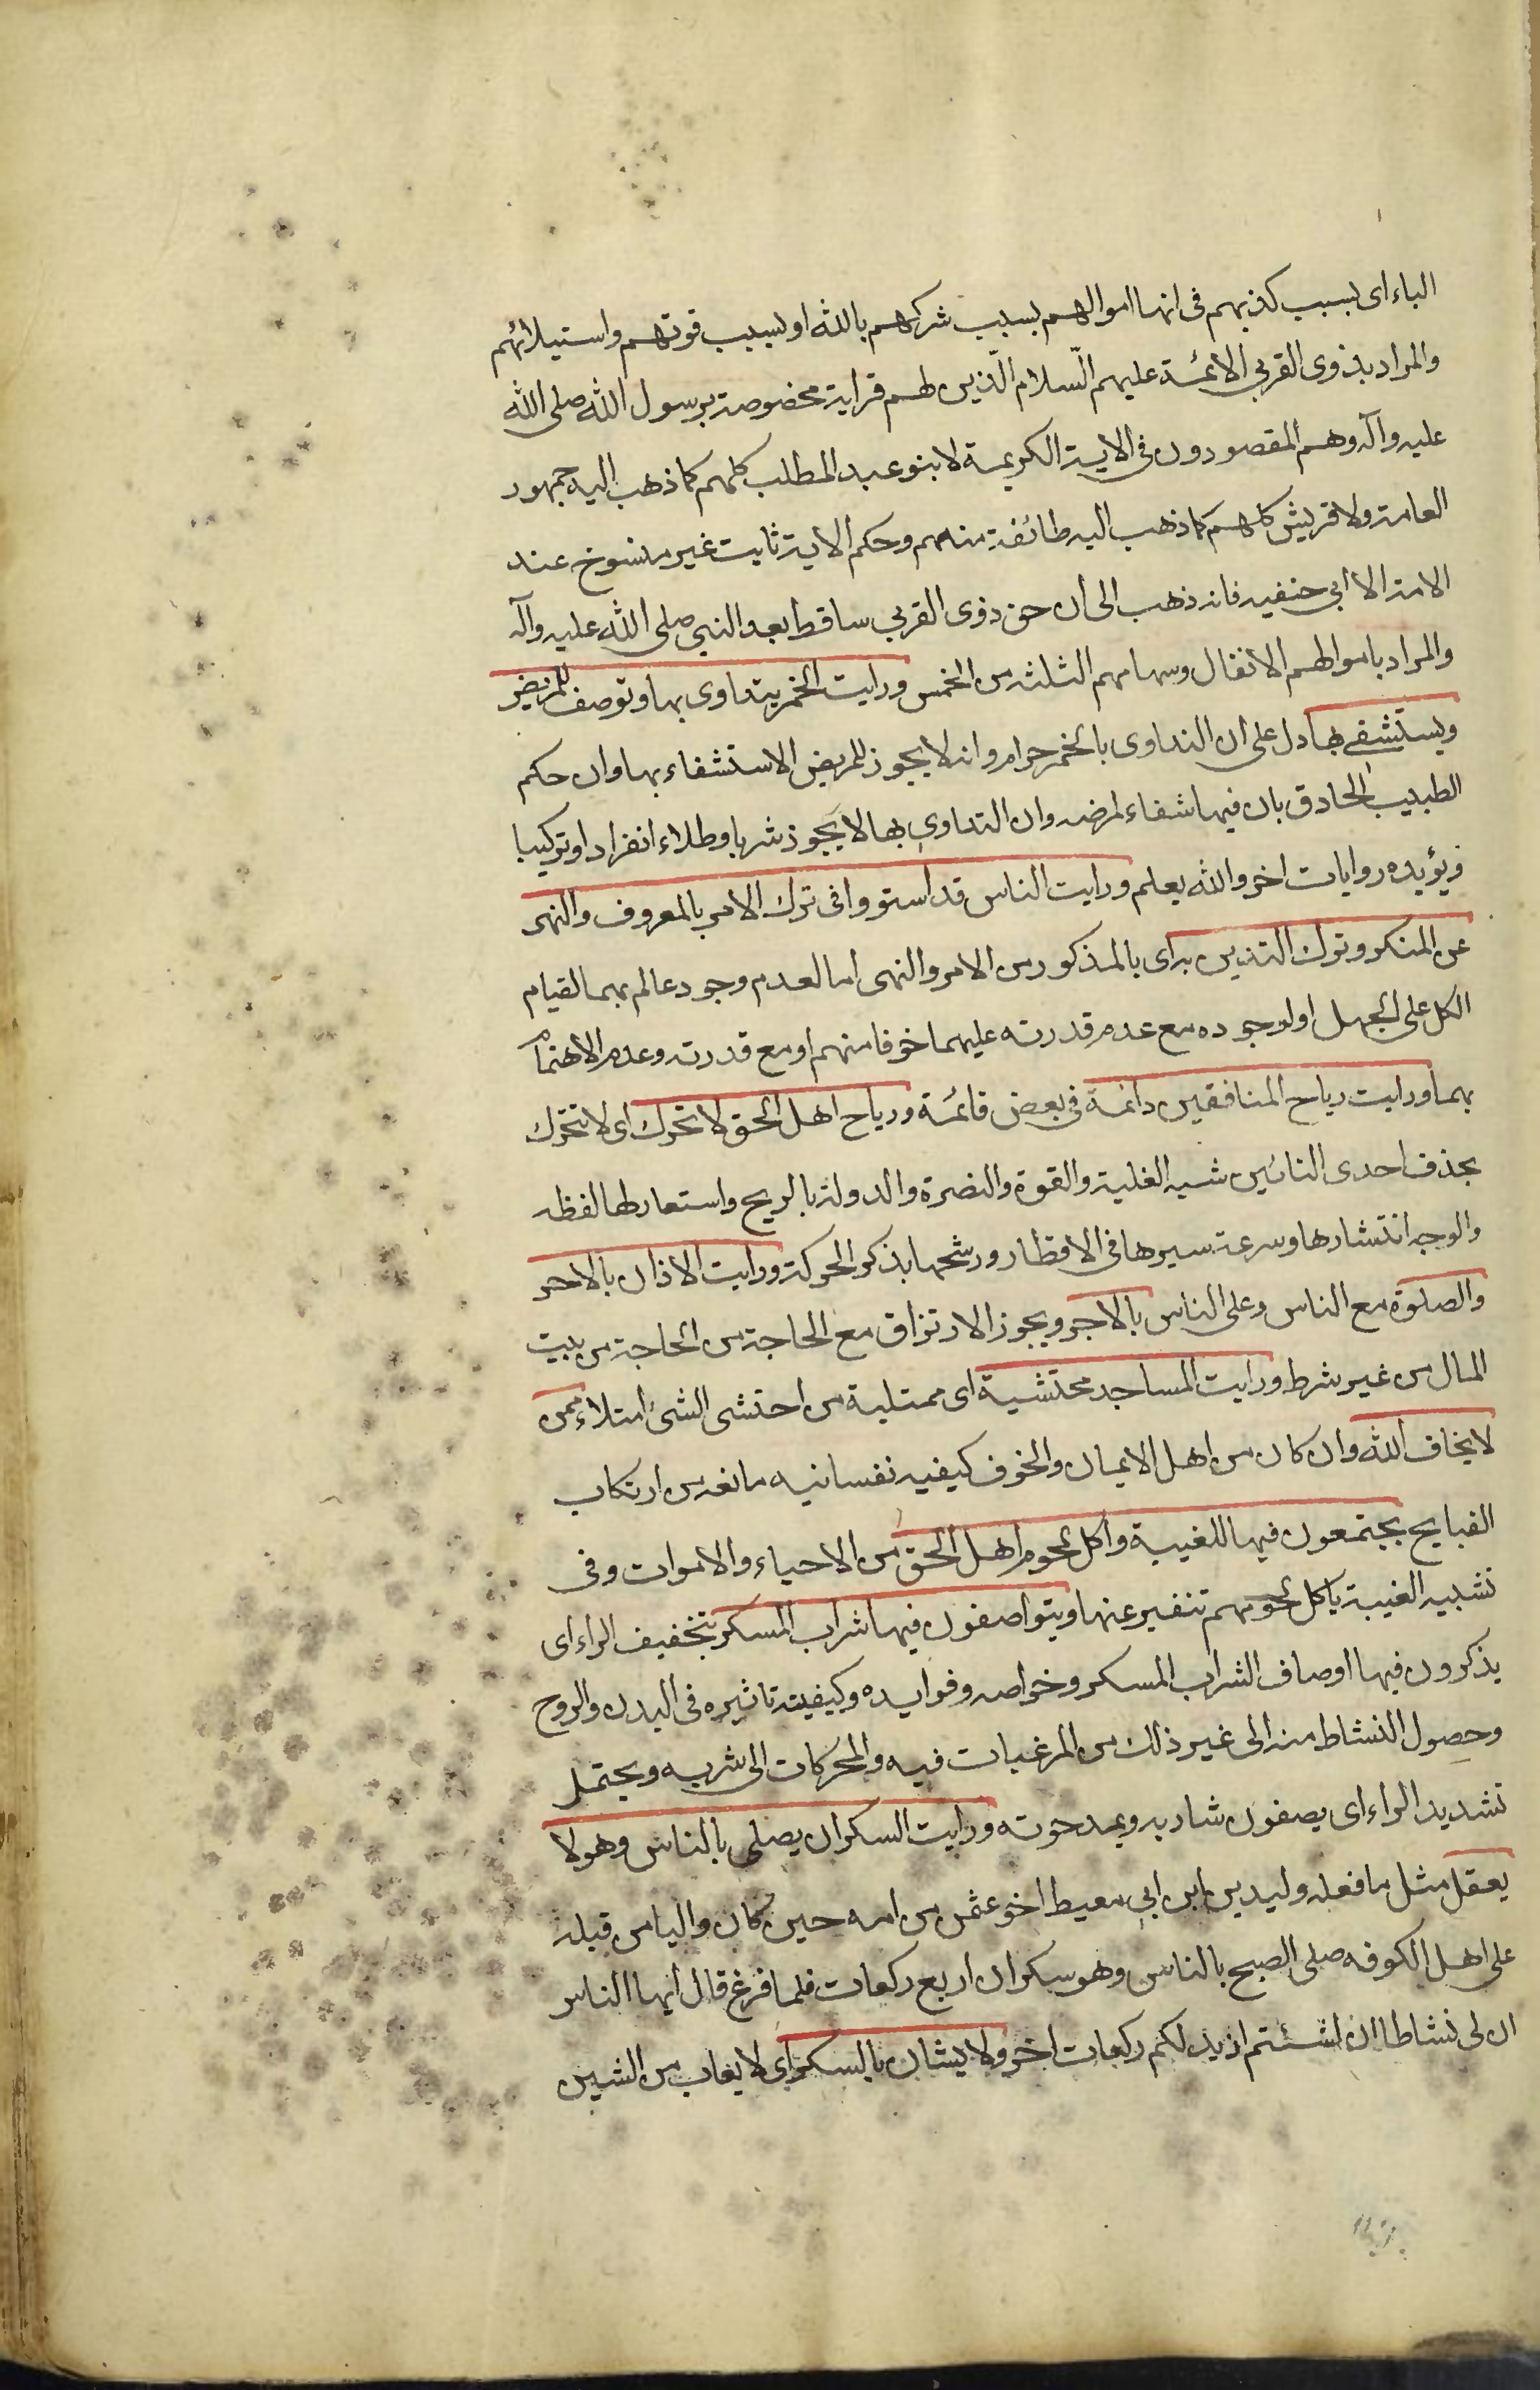 الباء اى بسبب كذبهم فى انها اموالهم بسبب شركهم بالله او بسبب قوتهم واستيلائهم
والمراد بذوى القربى الائمة عليهم السّلام الّذين لهم قرابة مخصوصة برسول الله صلى الله
عليه وآله وهم المقصودون فى الاية الكريمة لا بنو عبد المطلب كلهم كما ذهب اليه جمهور
العامة ولا قريش كلهم كما ذهب اليه طائفة منهم وحكم الاية ثابت غير منسوخ عند
الامة الا ابى حنفيه فانه ذهب الى ان حق ذوى القربى ساقط بعد النبى صلى الله عليه وآله
والمراد باموالهم الانفال وسهامهم الثلثة من الخمس ورايت الخمر يتداوى بها وتوصف للمريض
ويستشفى بها دل على ان التداوى بالخمر حرام وانه لا يجوز للمريض الاستشفاء بها وان حكم
الطبيب الحاذق بان فيها شفاء لمرضه وان التداوى بها لا يجوز شربا وطلاء انفرادا وتركيبا
ويؤيده روايات اخر والله يعلم ورايت الناس قد استووا فى ترك الامر بالمعروف والنهى
عن المنكر وترك التدين به اى بالمذكور من الامر والنهى اما لعدم وجود عالم بهما لقيام
الكل على الجهل او لوجوده مع عدم قدرته عليهما خوفا منهم او مع قدرته وعدم الاهتمام
بهما ورايت رياح المنافقين دائمة فى بعض قائمة ورياح اهل الحق لا تحرك اى لا تتحرك
بحذف احدى التائين شبه الغلبة والقوة والنصرة والدولة بالريح واستعار لها لفظه
والوجه انتشارها وسرعة سيرها فى الاقطار ورشحها بذكر الحركة ورايت الاذان بالاجر
والصلوة مع الناس وعلى الناس بالاجر ويجوز الارتزاق مع الحاجة من الحاجة من بيت
المال من غير شرط ورايت المساجد محتشية اى ممتلية من احتشى الشئ امتلاء ممن
لا يخاف الله وان كان من اهل الايمان والخوف كيفيه نفسانيه مانعه من ارتكاب
القبايح يجتمعون فيها للغيبة واكل لحوم اهل الحق من الاحياء والاموات وفى
تشبيه الغيبة باكل لحومهم تنفير عنها ويتواصفون فيها شراب المسكر بتخفيف الراء اى
يذكرون فيها اوصاف الشراب المسكر وخواصه وفوايده وكيفيته تاثيره فى البدن والروح
وحصول النشاط منه الى غير ذلك من المرغبات فيه والمحركات الى شربه ويحتمل
تشديد الراء اى يصفون شاربه ويمدحونه ورايت السكران يصلى بالناس وهو لا
يعقل مثل ما فعله وليد بن ابن ابى معيط اخو عثمن من امه حين كان واليا من قبله
على اهل الكوفه صلى الصبح بالناس وهو سكران اربع ركعات فلما فرغ قال ايها الناس
ان لى نشاطا ان شئتم ازيد لكم ركعات اخر ولا يشان بالسكر اى لا يعاب من الشين